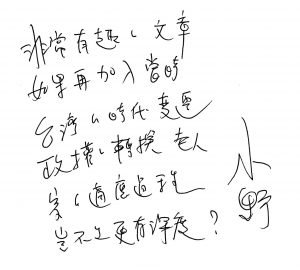 非常有趣的文章
如果再加入當時
台灣的時代變遷
政權的轉換 老人
家的適應過程
豈不是更有深度？
小野